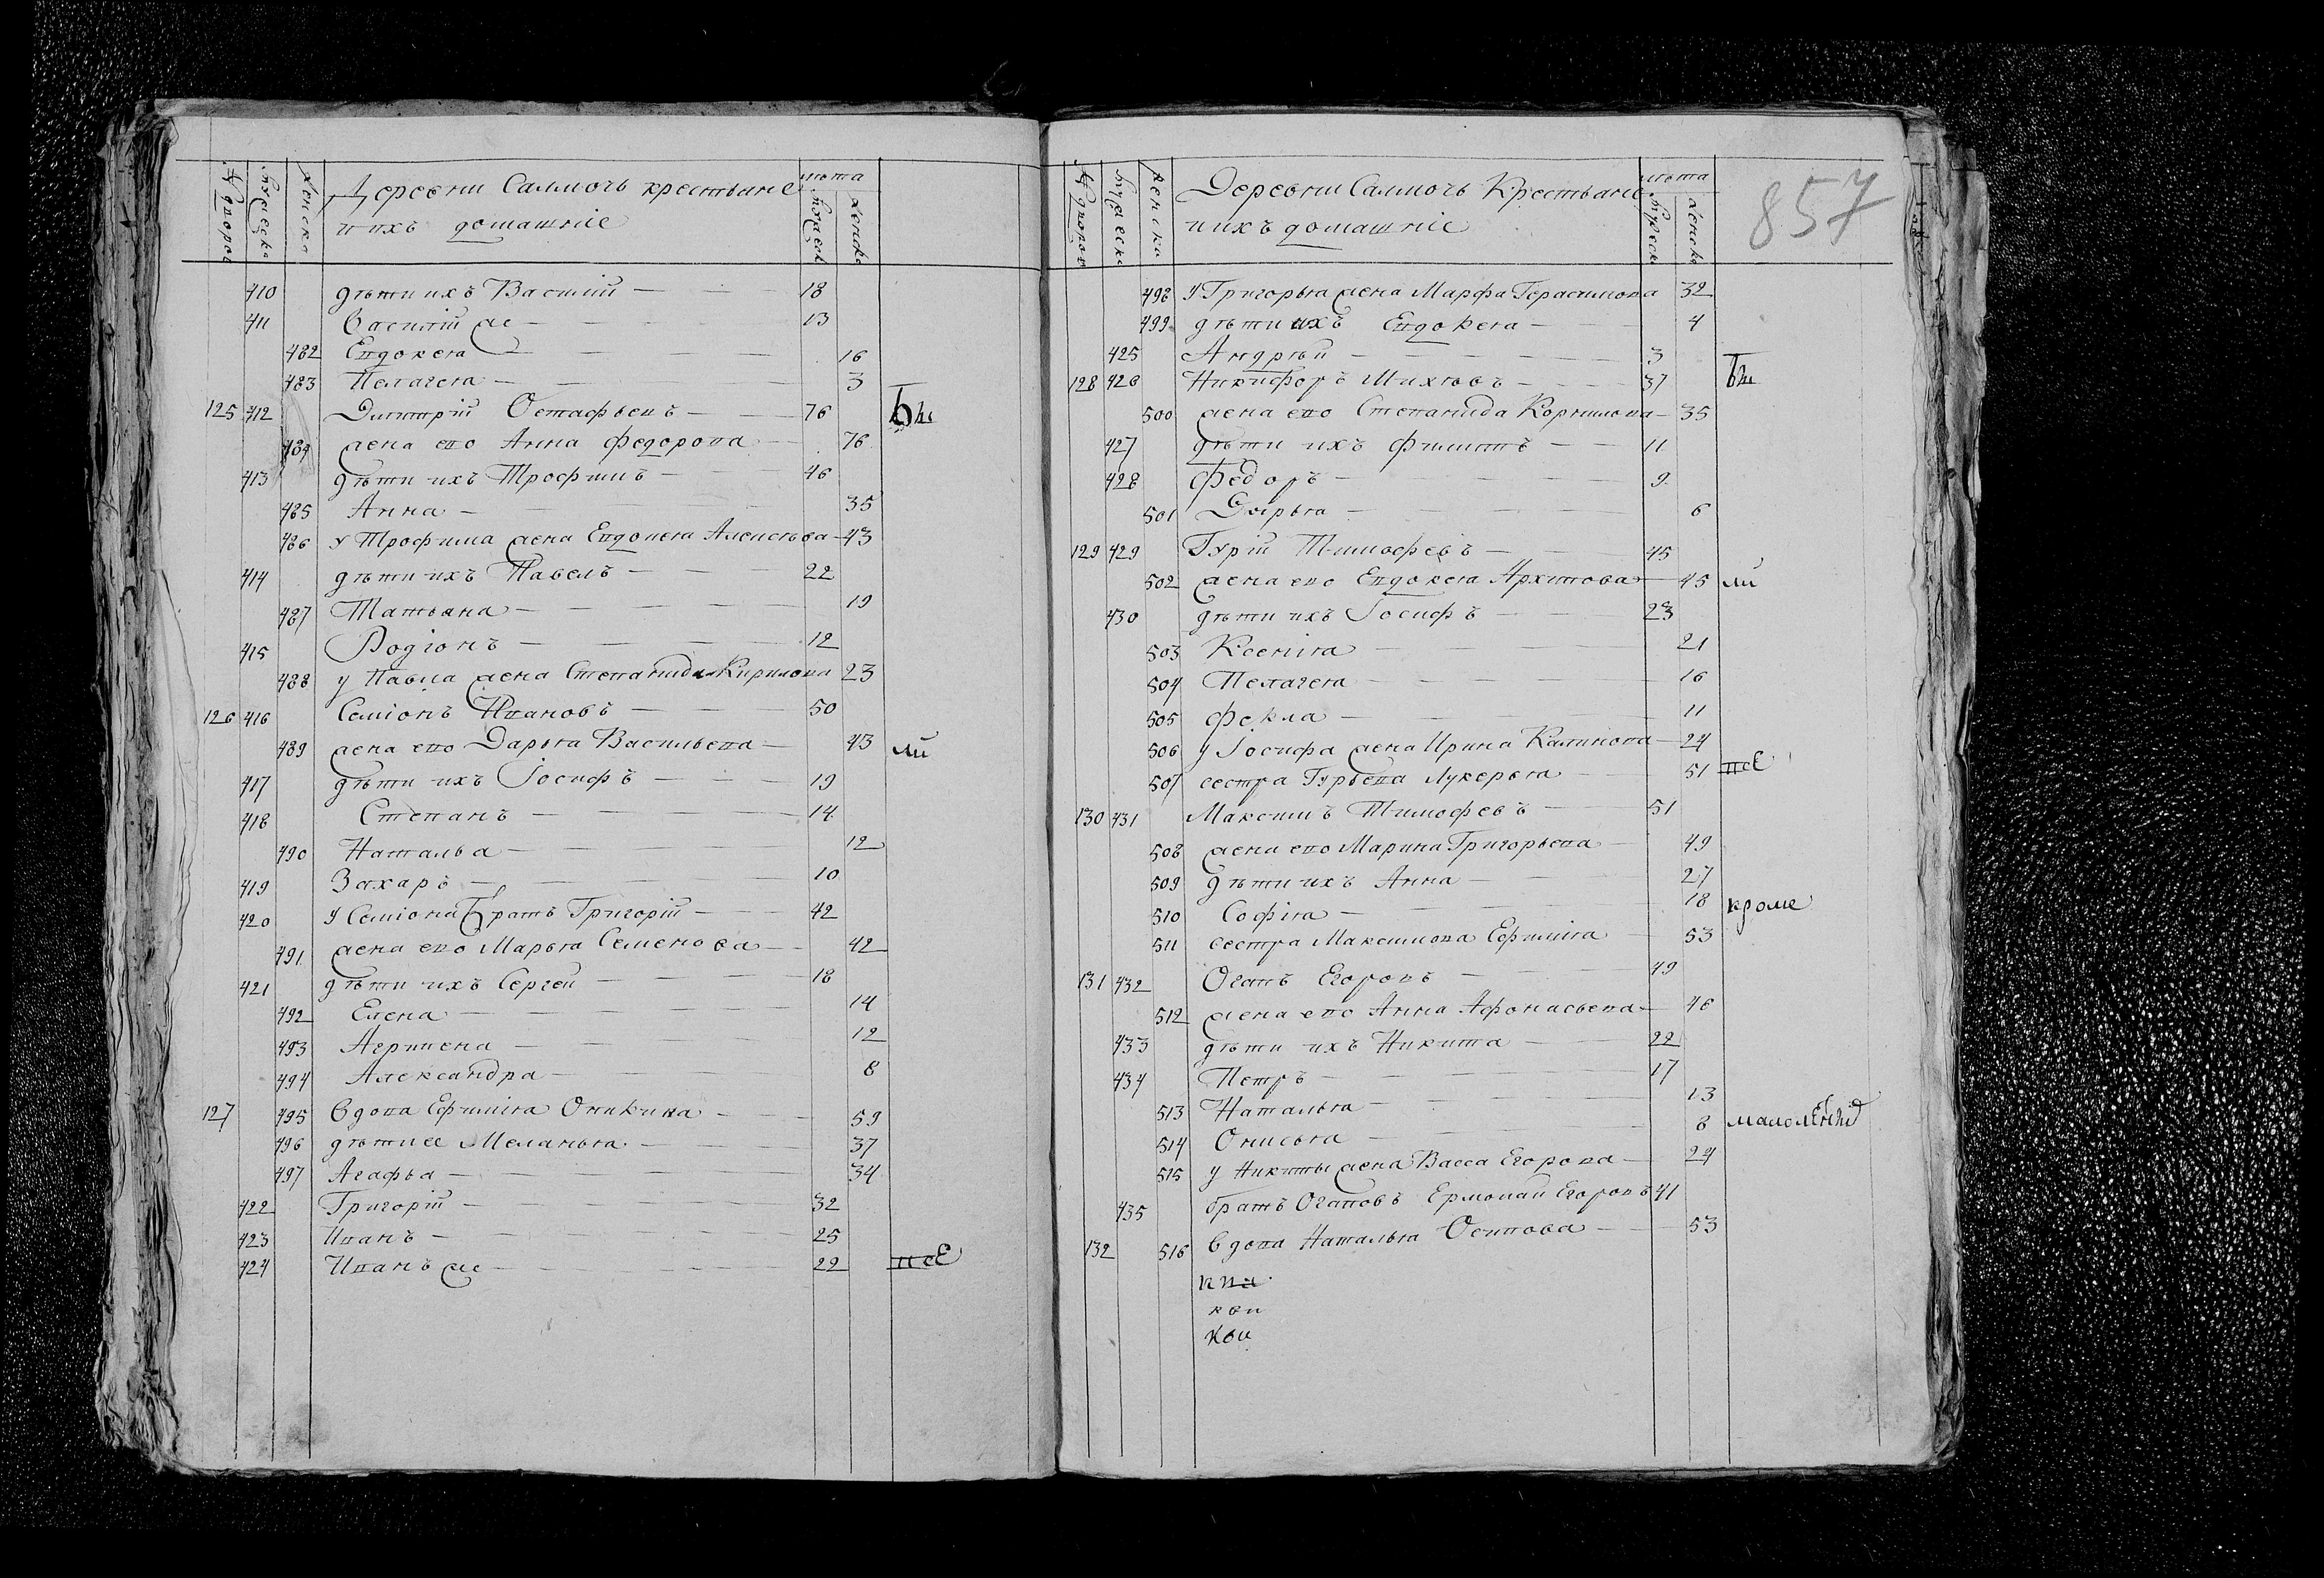 № дворов
Мужеска
Женска
Деревни Салмочь крестьяне
и ихъ домашніе
лѣта
Мужеск
Женска
410 дѣти ихъ Василій 18
411 Василій же 13
482 Евдокея 16
483 Пелагея 3
125 412 Дмитрій Остафьевъ 76 бы
484 жена его Анна Федорова 76
413 дѣти ихъ Трофимъ 46
485 Анна 35
486 у Трофима жена Евдокея Алексѣева 43
414 дѣти ихъ Павелъ 22
487 Татьяна 19
415 Родіонъ 12
488 у Павла жена Степанида Кирилова 23
126 416 Семіонъ Ивановъ 50
489 жена его Дарья Васильева 43 ли
417 дѣти ихъ Іосифъ 19
418 Степанъ 14
490 Наталья 12
419 Захаръ 10
420 У Семіона братъ Григорій 42
491 жена его Марья Семенова 42
421 дѣти ихъ Сергей 18
492 Елена 14
493 Агрипена 12
494 Александра 8
127 495 вдова Ефимія Оникина 59
496 дѣти ее Меланья 37
497 Агафья 34
422 Григорій 32
423 Иванъ 25
424 Иванъ же 22 всѣ
857
№ дворов
Мужеска
Женска
Деревни Салмочь Крестьяне
и ихъ домашніе
лѣта
Мужеск
Женска
498 У Григорья жена Марфа Герасимова 32
499 дѣти ихъ Евдокея 4
425 Андрѣй 3
128 426 Никифоръ Михѣевъ 37 бы
500 жена его Степанида Корнилова 35
427 дѣти ихъ Филипъ 11
428 Федоръ 9
501 Дарья 6
129 429 Гурій Тимофеевъ 45
502 жена его Евдокея Архипова 45 ли
430 дѣти ихъ Іосифъ 23
503 Ксенія 21
504 Пелагея 16
505 Фекла 11
506 у Іосифа жена Ирина Калинова 24
507 сестра Гурьева Лукерья 51 всѣ
130 431 Максимъ Тимофевъ 51
508 жена его Марина Григорьева 49
509 дѣти ихъ Анна 27
510 Софія 18 кроме
511 сестра Максимова Ефимія 53
131 432 Огапъ Егоровъ 49
512 жена его Анна Афонасьева 46
433 дѣти ихъ Никита 22
434 Петръ 17
513 Наталья 13
514 Онисья 8 малолѣтнихъ
515 у Никиты жена Васса Егорова 24
435 братъ Огаповъ Ермолай Егоровъ 41
132 516 вдова Наталья Осипова 53